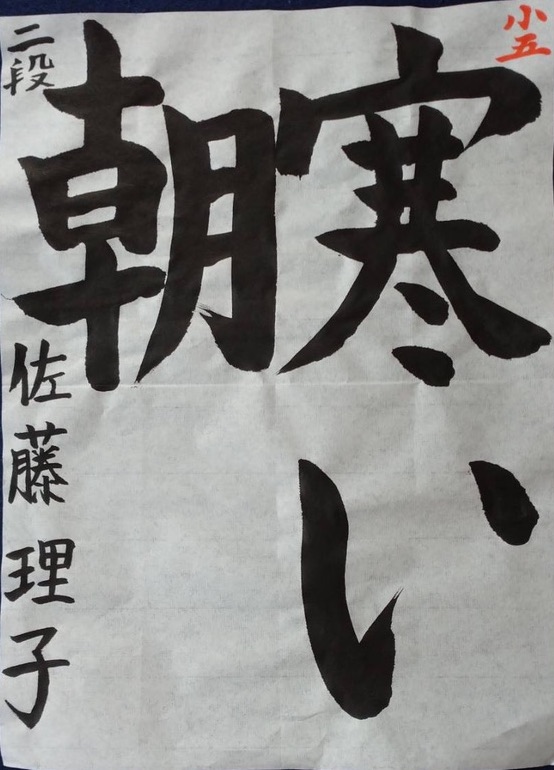 小五
寒い
朝
二段
佐藤理子